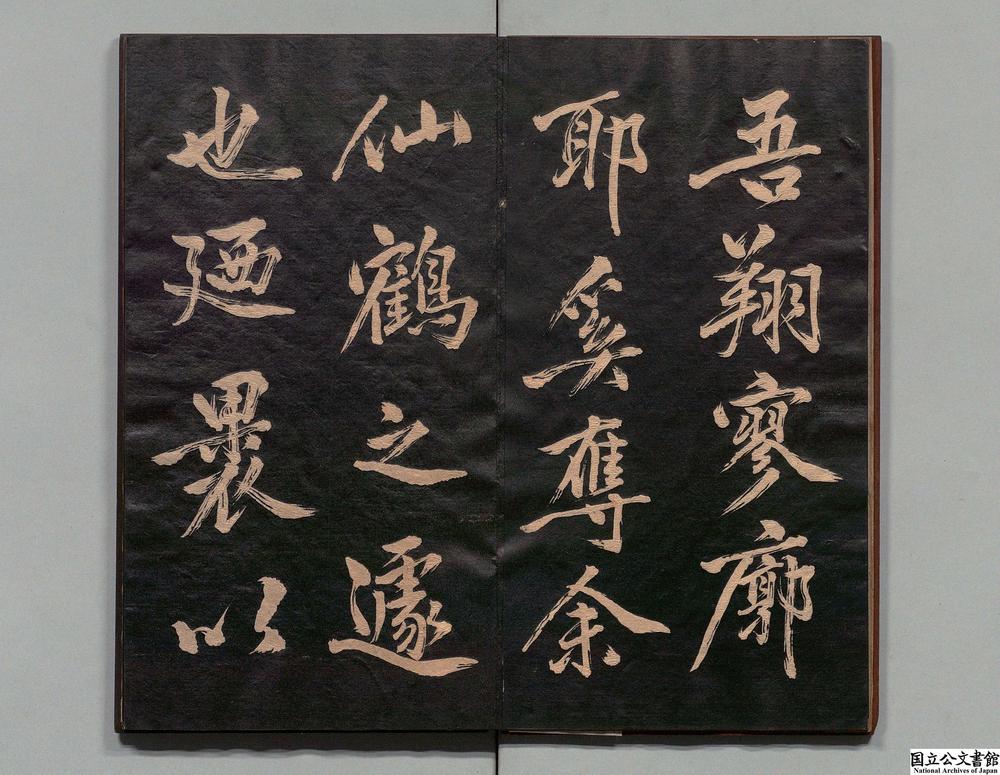 吾翔寥廓
耶奚奪余
仙鶴之遽
也廼裹以
国立公文書館
National Archives of Japan